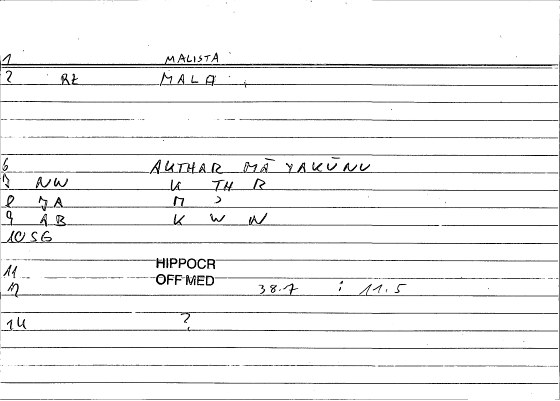 1 MALISTA
2 RZ MALA
6 AKTHAR MĀ YAKŪNU
7 NW K TH R
8 JA M ʾ
9 AB K W N
10 SG
11 HIPPOCR
OFF MED
12 38.7 : 11.5
14 ?